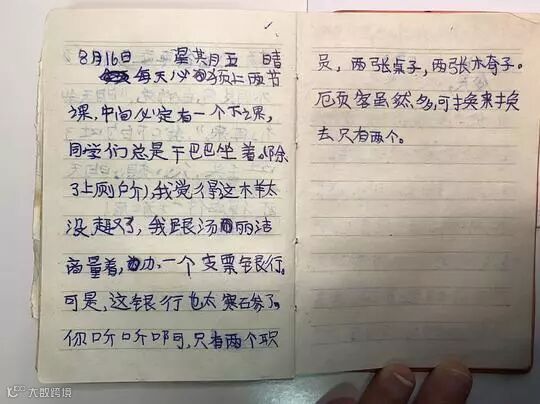 8月16日 星其月五 晴
每天必须上两节
课,中间必定有一个下课,
同学们总是干巴巴坐着。(除
了上厕所),我觉得这样太
没趣了,我跟汤丽洁
商量着,办一个支票银行。
可是,这银行也太寒碜了。
你听听啊,只有两个职
员,两张桌子,两张木奇子。
顾客虽然多,可换来换
去只有两个。
大数跨境